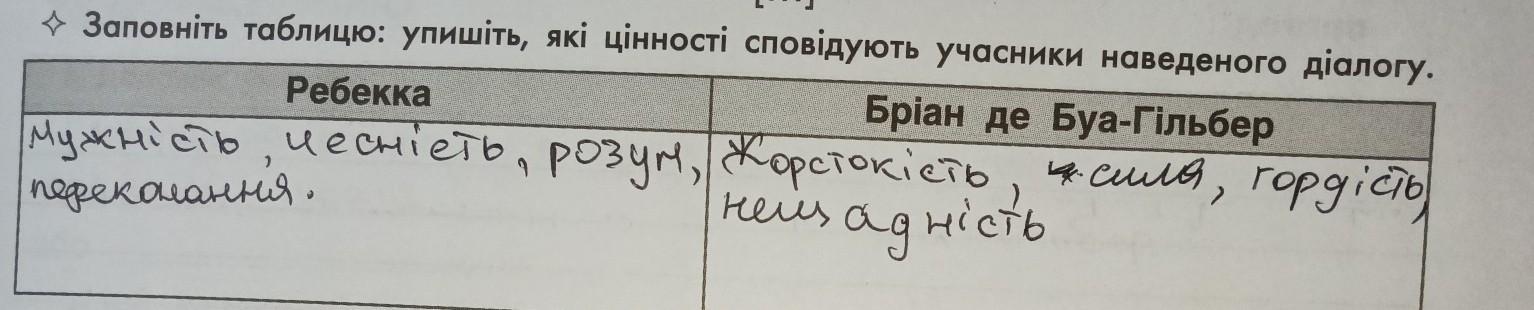 ✧ Заповніть таблицю: упишіть, які цінності сповідують учасники наведеного діалогу.
Ребекка
Бріан де Буа-Гільбер
Мужність, чесність, розум,
переконання.
Жорстокість, сила, гордість,
нещадність